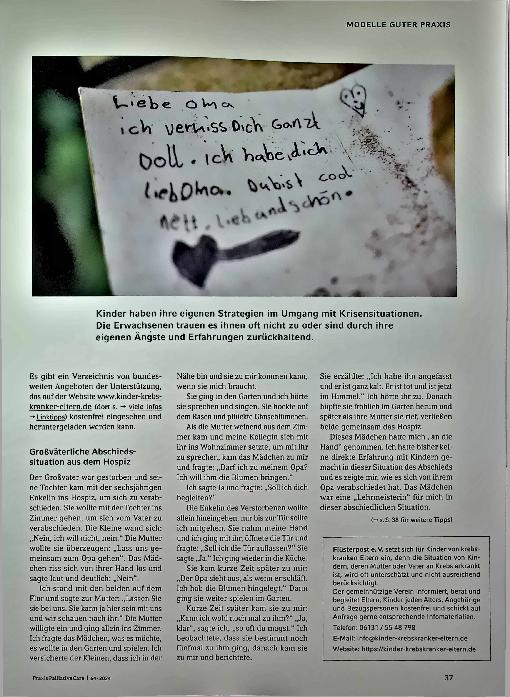 MODELLE GUTER PRAXIS
Liebe Oma
ich vermiss Dich Ganzt
Doll. ich habe dich
lieb Oma. Du bist cool
nett. lieb und schön.
Kinder haben ihre eigenen Strategien im Umgang mit Krisensituationen.
Die Erwachsenen trauen es ihnen oft nicht zu oder sind durch ihre
eigenen Ängste und Erfahrungen zurückhaltend.
Es gibt ein Verzeichnis von bundes-
weiten Angeboten der Unterstützung,
das auf der Website www.kinder-krebs-
kranker-eltern.de (dort s. → viele Infos
→ Linktipps) kostenfrei eingesehen und
heruntergeladen werden kann.
Großväterliche Abschieds-
situation aus dem Hospiz
Der Großvater war gestorben und sei-
ne Tochter kam mit der sechsjährigen
Enkelin ins Hospiz, um sich zu verab-
schieden. Sie wollte mit der Tochter ins
Zimmer gehen, um sich vom Vater zu
verabschieden. Die Kleine wand sich:
„Nein, ich will nicht, nein.“ Die Mutter
wollte sie überzeugen: „Lass uns ge-
meinsam zum Opa gehen“. Das Mäd-
chen riss sich von ihrer Hand los und
sagte laut und deutlich: „Nein“.
Ich stand mit den beiden auf dem
Flur und sagte zur Mutter: „Lassen Sie
sie bei uns. Sie kann ja hier sein mit uns
und wir schauen nach ihr.“ Die Mutter
willigte ein und ging allein ins Zimmer.
Ich fragte das Mädchen, was es möchte,
es wollte in den Garten und spielen. Ich
versicherte der Kleinen, dass ich in der
Nähe bin und sie zu mir kommen kann,
wenn sie mich braucht.
Sie ging in den Garten und ich hörte
sie sprechen und singen. Sie hockte auf
dem Rasen und pflückte Gänseblümchen.
Als die Mutter weinend aus dem Zim-
mer kam und meine Kollegin sich mit
ihr ins Wohnzimmer setzte, um mit ihr
zu sprechen, kam das Mädchen zu mir
und fragte: „Darf ich zu meinem Opa?
Ich will ihm die Blumen bringen.“
Ich sagte ja und fragte: „Soll ich dich
begleiten?“
Die Enkelin des Verstorbenen wollte
allein hineingehen, nur bis zur Tür sollte
ich mitgehen. Sie nahm meine Hand
und ich ging mit ihr, öffnete die Tür und
fragte: „Soll ich die Tür auflassen?“ Sie
sagte „Ja.“ Ich ging wieder in die Küche.
Sie kam kurze Zeit später zu mir:
„Der Opa sieht aus, als wenn er schläft.
Ich hab die Blumen hingelegt.“ Dann
ging sie wieder spielen im Garten.
Kurze Zeit später kam sie zu mir:
„Kann ich wohl nochmal zu ihm?“ „Ja,
klar“, sagte ich, „so oft du magst.“ Ich
beobachtete, dass sie bestimmt noch
fünfmal zu ihm ging, danach kam sie
zu mir und berichtete.
Sie erzählte: „Ich habe ihn angefasst
und er ist ganz kalt. Er ist tot und ist jetzt
im Himmel.“ Ich hörte ihr zu. Danach
hüpfte sie fröhlich im Garten herum und
später als ihre Mutter sie rief, verließen
beide gemeinsam das Hospiz.
Dieses Mädchen hatte mich „an die
Hand“ genommen. Ich hatte bisher kei-
ne direkte Erfahrung mit Kindern ge-
macht in dieser Situation des Abschieds
und es zeigte mir, wie es sich von ihrem
Opa verabschiedet hat. Das Mädchen
war eine „Lehrmeisterin“ für mich in
dieser abschiedlichen Situation.
(→ s. S. 38 für weitere Tipps)
Flüsterpost e.V. setzt sich für Kinder von krebs-
kranken Eltern ein, denn die Situation von Kin-
dern, deren Mutter oder Vater an Krebs erkrankt
ist, wird oft unterschätzt und nicht ausreichend
berücksichtigt.
Der gemeinnützige Verein informiert, berät und
begleitet Eltern, Kinder jeden Alters, Angehörige
und Bezugspersonen kostenfrei und schickt auf
Anfrage gerne entsprechende Infomaterialien.
Telefon: 06131 / 55 48 798
E-Mail: info@kinder-krebskranker-eltern.de
Website: https://kinder-krebskranker-eltern.de
Praxis PalliativeCare | 64-2024
37